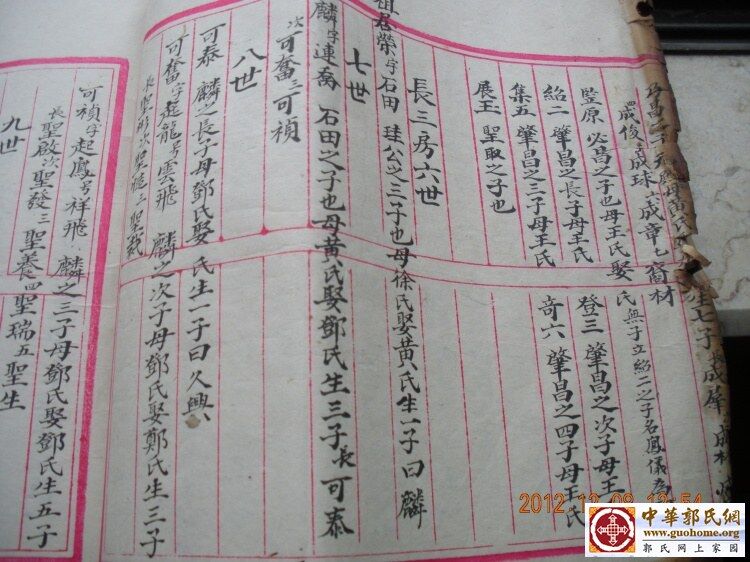 成俊 成球 成章 七啇材
監原 必嵩之子也母王氏娶
氏無子立紹二之子名鳳儀為
紹二 肇昌之長子母王氏
登三 肇昌之次子母王
集五 肇昌之三子母王氏
奇六 肇昌之四子母王氏
展玉 聖取之子也
長三房六世
祖居榮字石田 珪公之三子也母徐氏娶黃氏生一子曰麟
七世
麟字連喬 石田之子也母黃氏娶鄧氏生三子長可泰
次可奮三可禎
八世
可泰 麟之長子母鄧氏娶 氏生一子曰久興
可奮字起龍号雲飛 麟之次子母鄧氏娶鄭氏生三子
可禎字起鳳号祥飛 麟之三子母鄧氏娶鄧氏生五子
長聖啟次聖發三聖養四聖瑞五聖生
九世
2012
中華郭氏網
www.guohome.org
郭氏网上家园